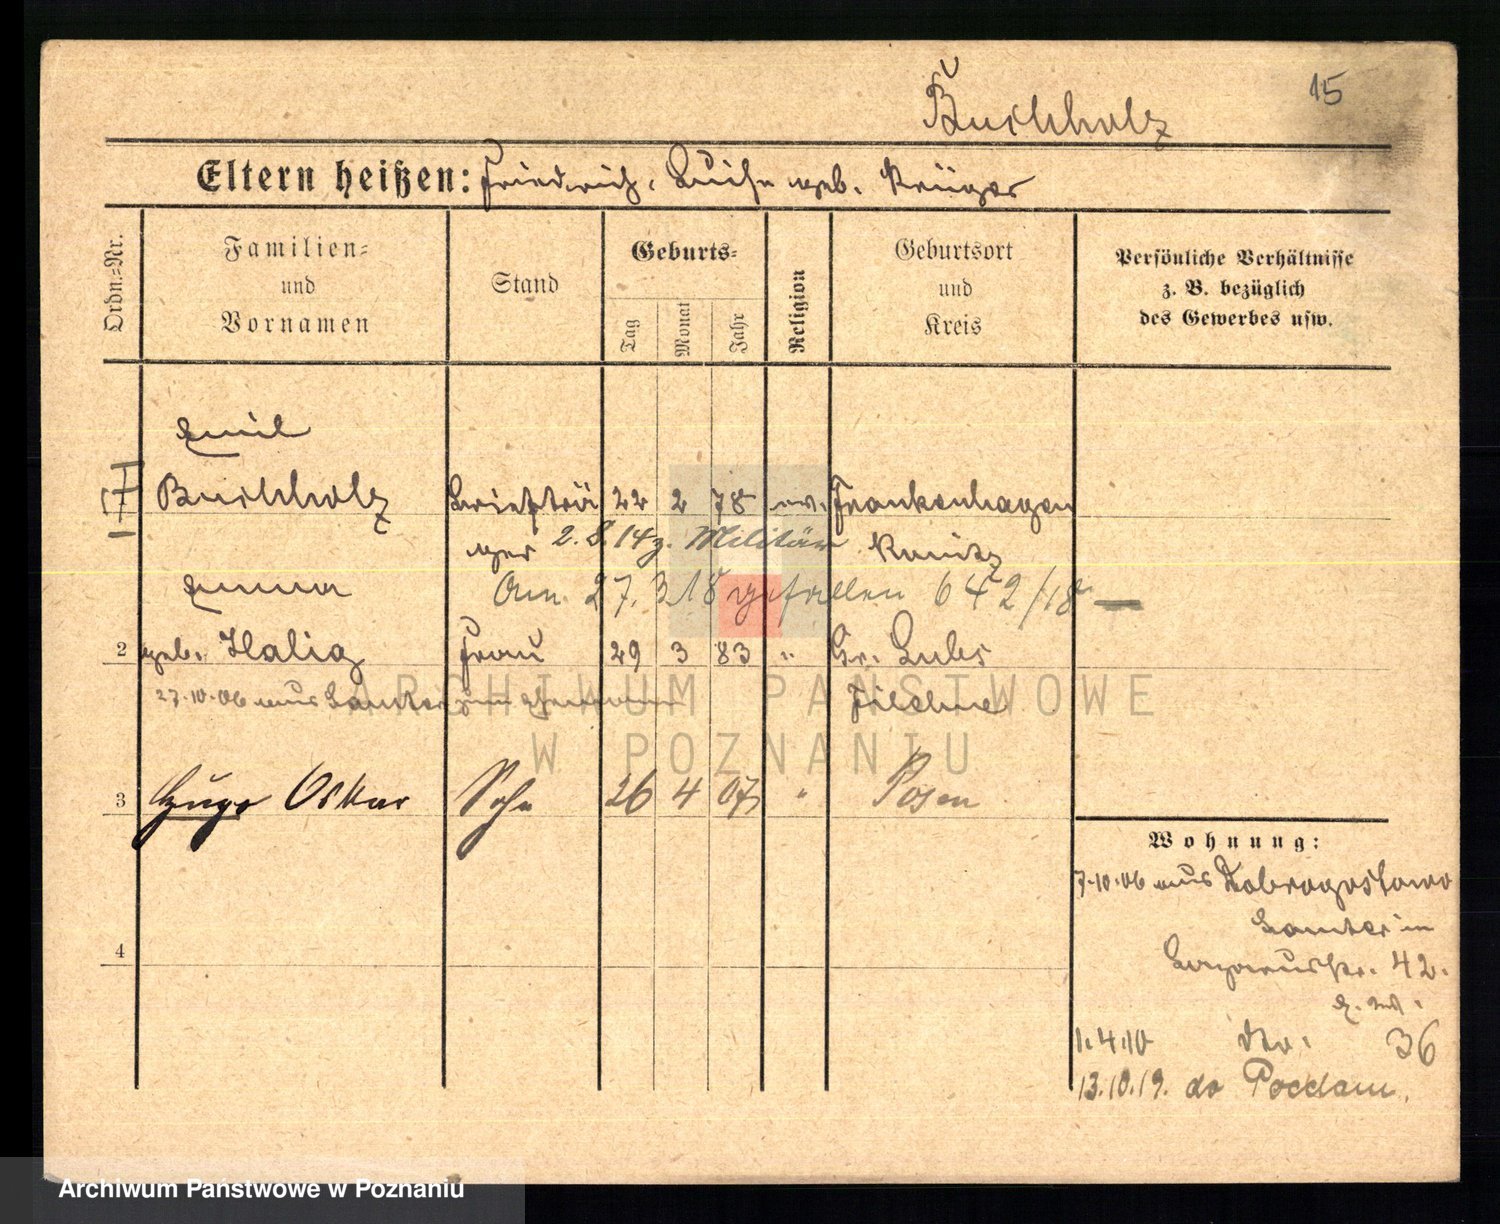 15
Buchholz
Eltern heißen: Friedrich, Luise geb. Krüger
Ordn.=Nr.
Familien=
und
Vornamen
Stand
Geburts=
Tag
Monat
Jahr
Religion
Geburtsort
und
Kreis
Persönliche Verhältnisse
z. B. bezüglich
des Gewerbes usw.
Emil
1 Buchholz Briefträ 22 2 78 ev. Frankenhagen
ger 2.8.14 z. Militär Konitz
Am 27.3.18 gefallen 642/18
Emma
2 geb. Halig Frau 29 3 83 " Gr. Lubs
27.10.06 aus Samter zum Ehemann Filehne
3 Hugo Oskar Sohn 26 4 07 " Posen
4
Wohnung:
7.10.06 aus Dobrogostowo
Samter in
Lazarusstr. 42.
1.4.10 36
13.10.19. do
ARCHIWUM PAŃSTWOWE
W POZNANIU
Archiwum Państwowe w Poznaniu